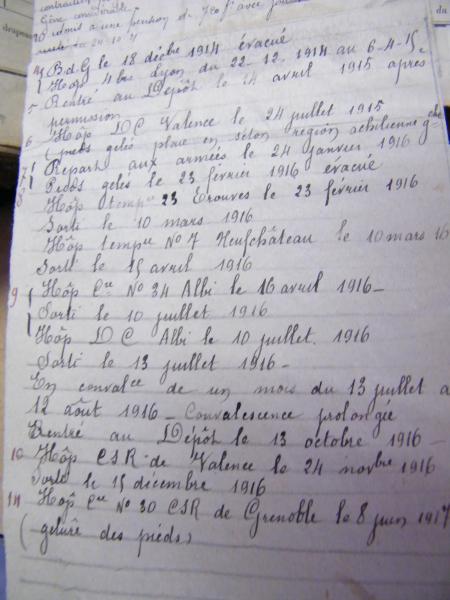 Gêne considérable
admis à une pension de
4 B.d.G le 18 décbre 1914 évacué
Hôp 4 bis Lyon du 22-12-1914 au 6-4-15.
5 Rentré au Dépôt le 14 avril 1915 après
permission
6 Hôp DC Valence le 24 juillet 1915
(pieds gelés plaie en selon région achilienne gche
7 Repart aux armées le 24 janvier 1916
8 Pieds gelés le 23 février 1916 évacué
Hôp tempre 23 Erouves le 23 février 1916
Sorti le 10 mars 1916
Hôp tempre No 7 Neufchâteau le 10 mars 16
Sorti le 15 avril 1916
9 Hôp Cre No 34 Albi le 16 avril 1916-
Sorti le 10 juillet 1916
Hôp DC Albi le 10 juillet 1916
Sorti le 13 juillet 1916-
En convalce de un mois du 13 juillet a
12 août 1916 - Convalescence prolongée
Rentré au Dépôt le 13 octobre 1916-
10 Hôp CSR de Valence le 24 novbre 1916
Sorti le 15 décembre 1916
11 Hôp Cre No 30 CSR de Grenoble le 8 juin 1917
(gelure des pieds)